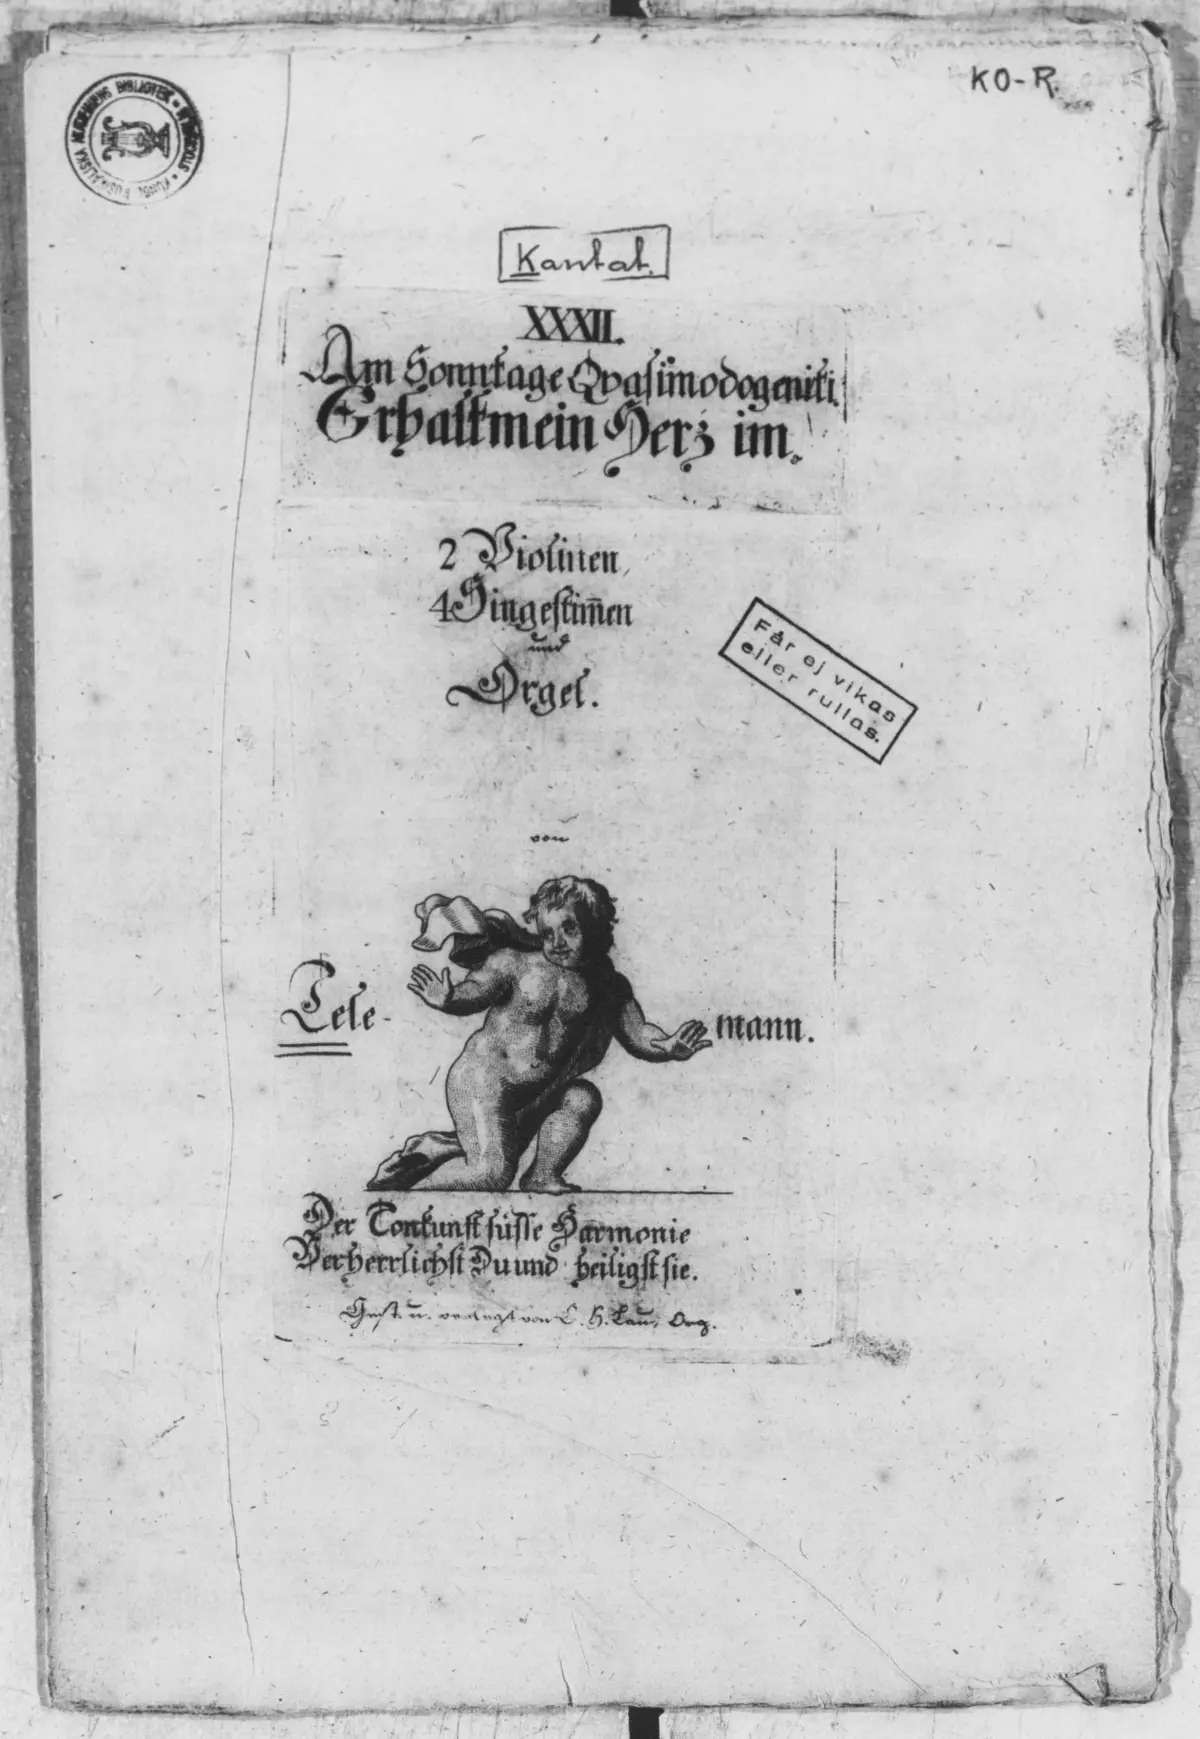 KO-R.
KUNGL. MUSIKALISKA AKADEMIENS BIBLIOTEK
Kantat.
XXXII.
Am Sonntage Qvasimodogeniti.
Erhalt mein Herz im.
2 Violinen,
4 Singestim̄en
und
Orgel.
Får ej vikas
eller rullas.
von
Tele-
mann.
Der Tonkunst süsse Harmonie
Verherrlichst Du und heiligst sie.
Gest. u. verlegt von C. H. Lau, Org.